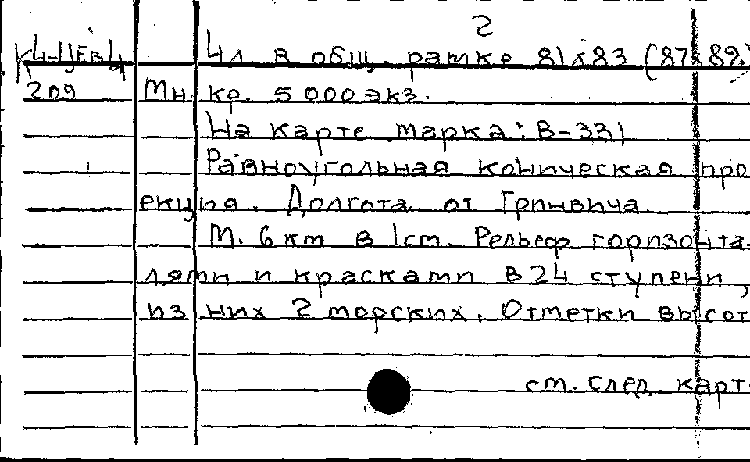 2
К4-ЦЕВ4 4л в общ. рамке 81х83 (87х89)
209 Мн. кр. 5000 экз.
На карте марка: В-331
Равноугольная коническая про
екция. Долгота от Гринвича
М. 6 км в 1 см. Рельеф горизонта-
лями и красками в 24 ступени,
из них 2 морских. Отметки высот
см. след. карт